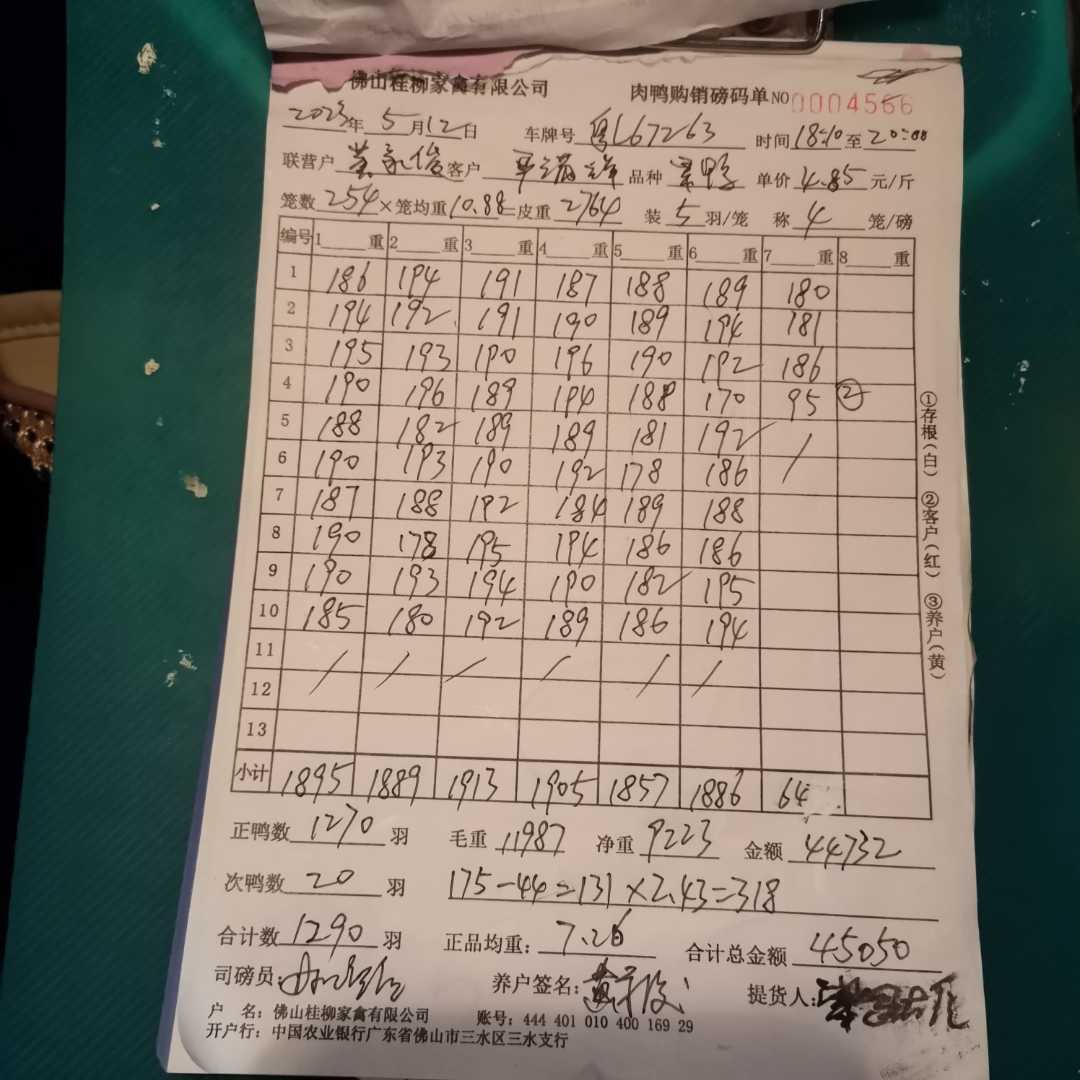 佛山桂柳家禽有限公司 肉鸭购销磅码单 NO 0004566
2023年 5月12日 车牌号 粤L67263 时间 18:10至20:00
联营户 黄家俊 客户 品种 单价 4.85 元/斤
笼数 254×笼均重10.88=皮重 2764 装 5 羽/笼 称 4 笼/磅
编号 1 重 2 重 3 重 4 重 5 重 6 重 7 重 8 重
1 186 194 191 187 188 189 180
2 194 192 191 190 189 194 181
3 195 193 190 196 190 192 186
4 190 196 189 194 188 170 95 ②
5 188 182 189 189 181 192 /
6 190 193 190 192 178 186
7 187 188 192 184 189 188
8 190 178 195 194 186 186
9 190 193 194 190 182 195
10 185 180 192 189 186 194
11 / / / / / /
12
13
小计 1895 1889 1913 1905 1857 1886 64
正鸭数 1270 羽 毛重 11987 净重 9223 金额 44732
次鸭数 20 羽 175-44=131×2.43=318
合计数 1290 羽 正品均重: 7.26 合计总金额 45050
司磅员: 养户签名: 黄家俊 提货人:
户 名: 佛山桂柳家禽有限公司 账号: 444 401 010 400 169 29
开户行: 中国农业银行广东省佛山市三水区三水支行
①存根(白) ②客户(红) ③养户(黄)